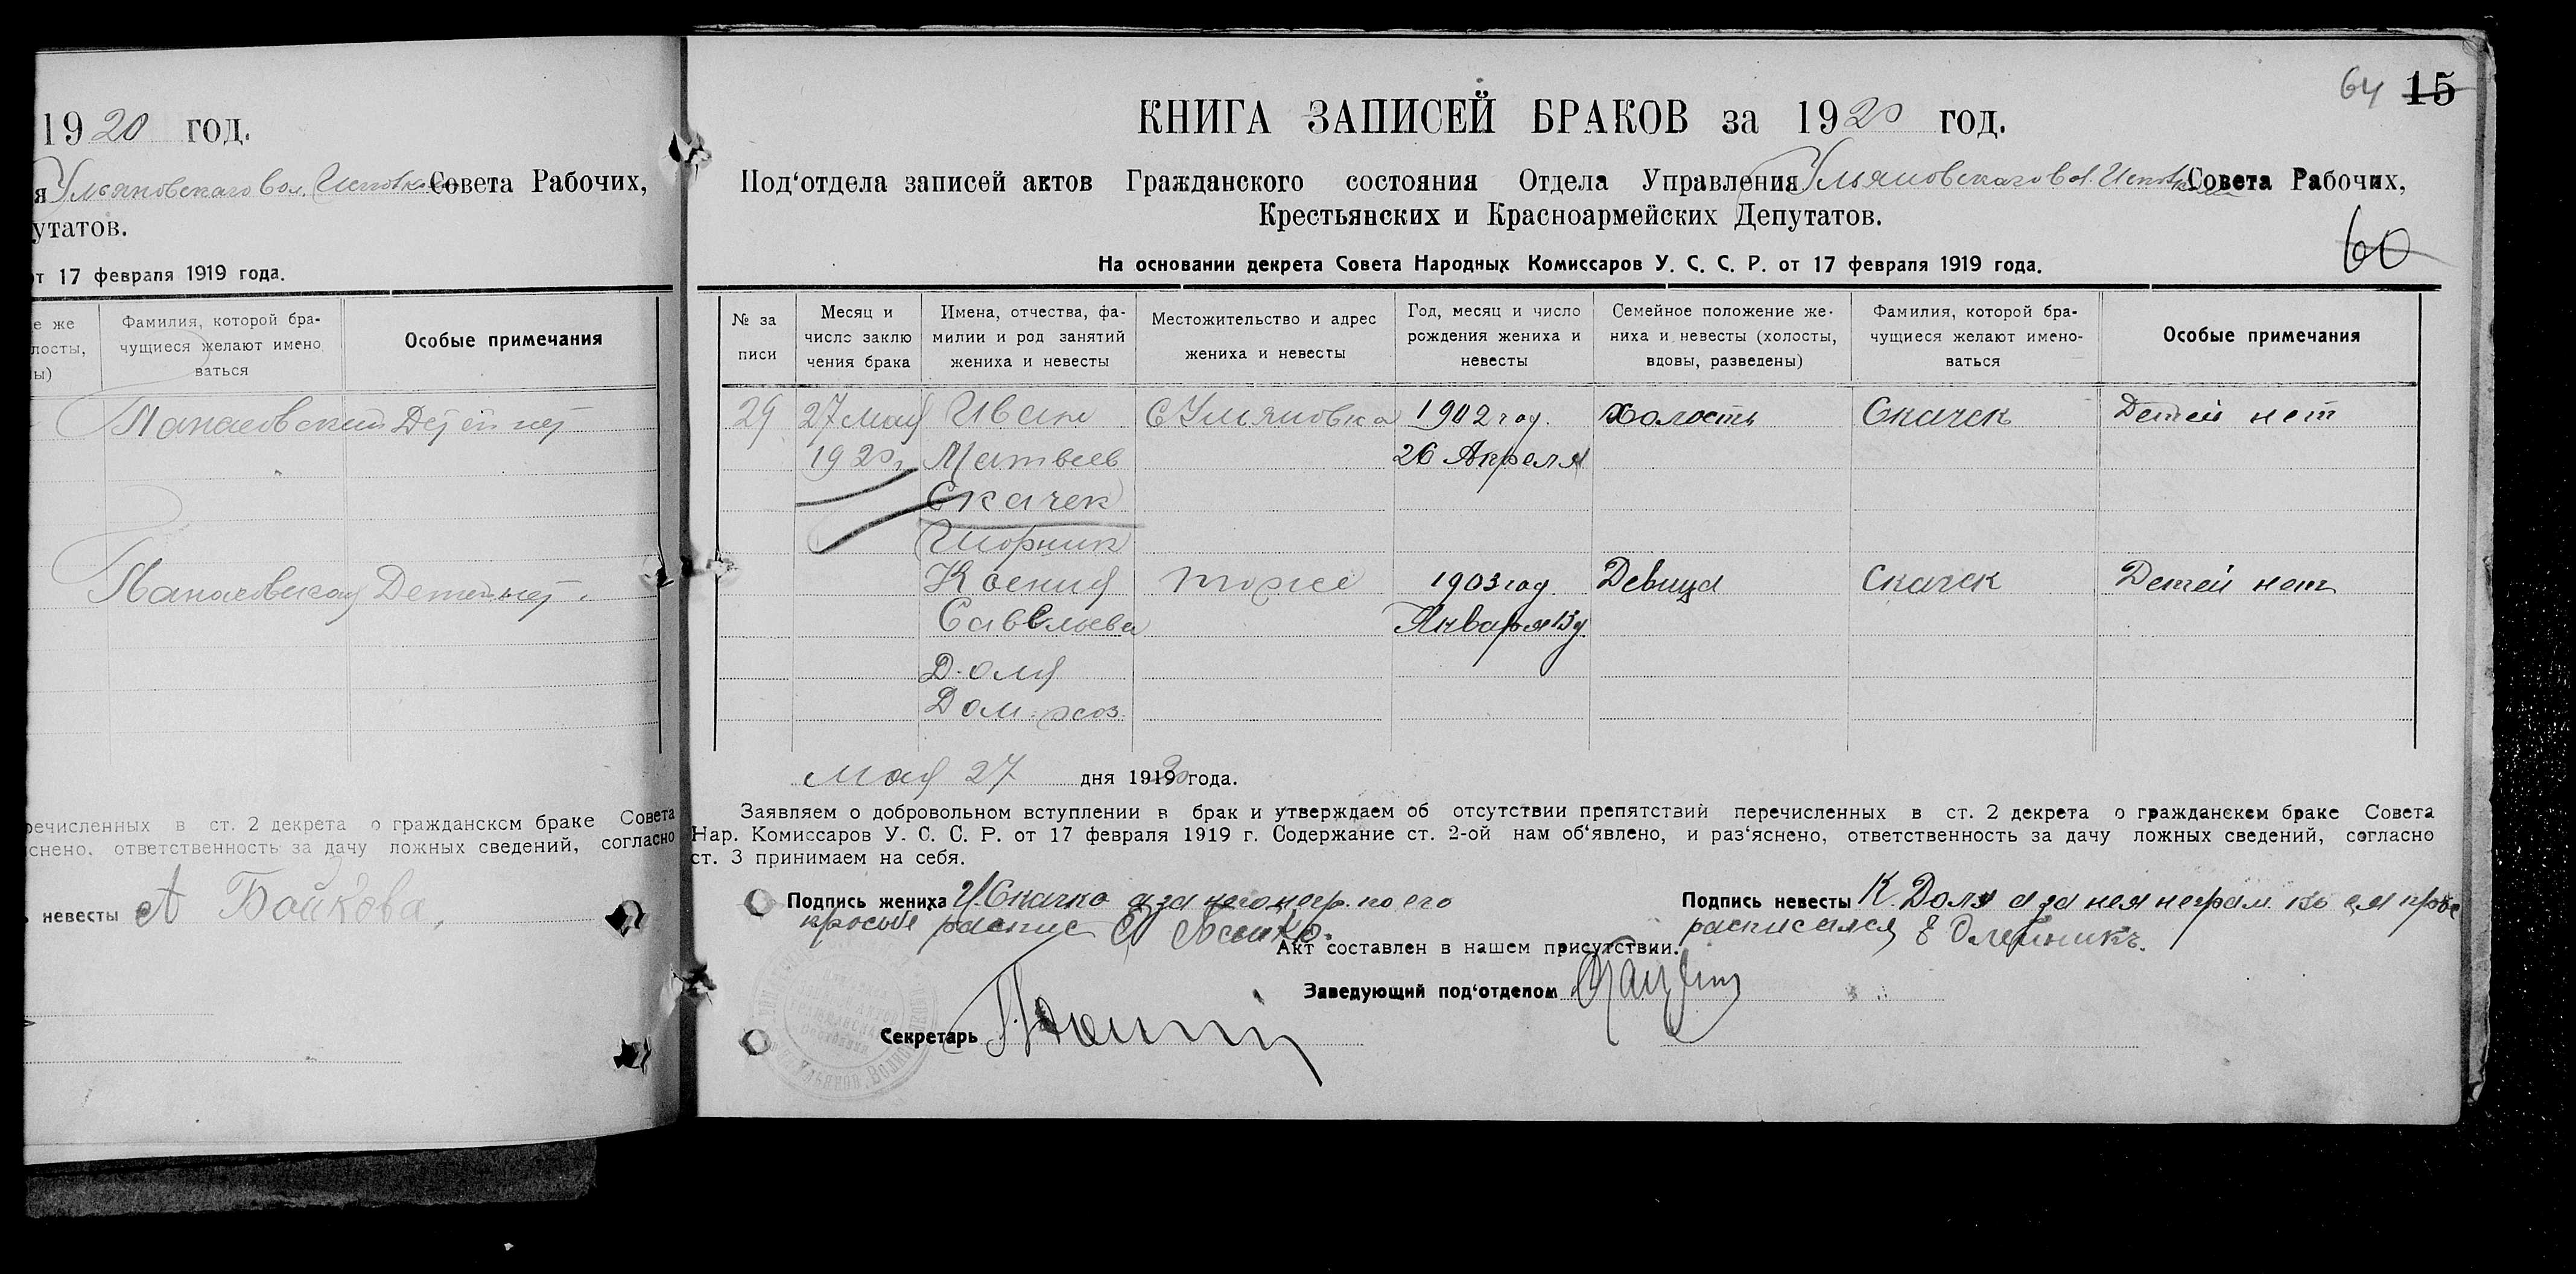 1920 год.
я Ульяновскаго Вол. Исполкома Совета Рабочих,
утатов.
от 17 февраля 1919 года.
е же
лосты,
ы)
Фамилия, которой бра-
чущиеся желают имено
ваться
Особые примечания
Панасовский Детей нет
Панасовская Детей нет.
речисленных в ст. 2 декрета о гражданском браке Совета
снено, ответственность за дачу ложных сведений, согласно
невесты А Бойкова.
64 15
КНИГА ЗАПИСЕЙ БРАКОВ за 1920 год.
Под‘отдела записей актов Гражданского состояния Отдела Управления Ульяновскаго Вол. Исполкома Совета Рабочих,
Крестьянских и Красноармейских Депутатов.
60
На основании декрета Совета Народных Комиссаров У. С. С. Р. от 17 февраля 1919 года.
№ за
писи
Месяц и
число заклю
чения брака
Имена, отчества, фа-
милии и род занятий
жениха и невесты
Местожительство и адрес
жениха и невесты
Год, месяц и число
рождения жениха и
невесты
Семейное положение же-
ниха и невесты (холосты,
вдовы, разведены)
Фамилия, которой бра-
чущиеся желают имено-
ваться
Особые примечания
29 27 мая Иван С Ульяновка 1902 год. холостъ Скачек Детей нет
1920 г. Матвеев 26 Апреля
Скачек
Шорник
Ксения тоже 1903 год. Девица Скачек Детей нет
Савельева Января 13 д
Доля
Дом. хоз.
мая 27 дня 1920 года.
Заявляем о добровольном вступлении в брак и утверждаем об отсутствии препятствий перечисленных в ст. 2 декрета о гражданском браке Совета
Нар. Комиссаров У. С. С. Р. от 17 февраля 1919 г. Содержание ст. 2-ой нам об‘явлено, и раз‘яснено, ответственность за дачу ложных сведений, согласно
ст. 3 принимаем на себя.
Подпись жениха И. Скачко а за него негр. по его
просьбе распис
Подпись невесты К. Доля а за нея неграм. по ея прозбе
расписался Е Олейникъ.
Акт составлен в нашем присутствии.
Заведующий под‘отделом
Секретарь